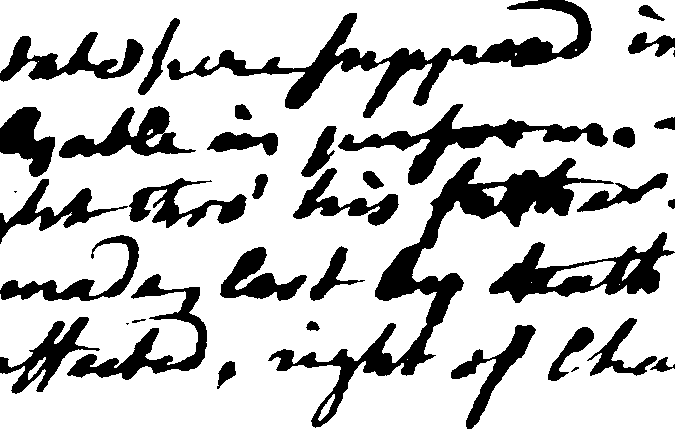 here supposed in
in perform-
ght thro' his father
made, last by death
affected, right of Cha